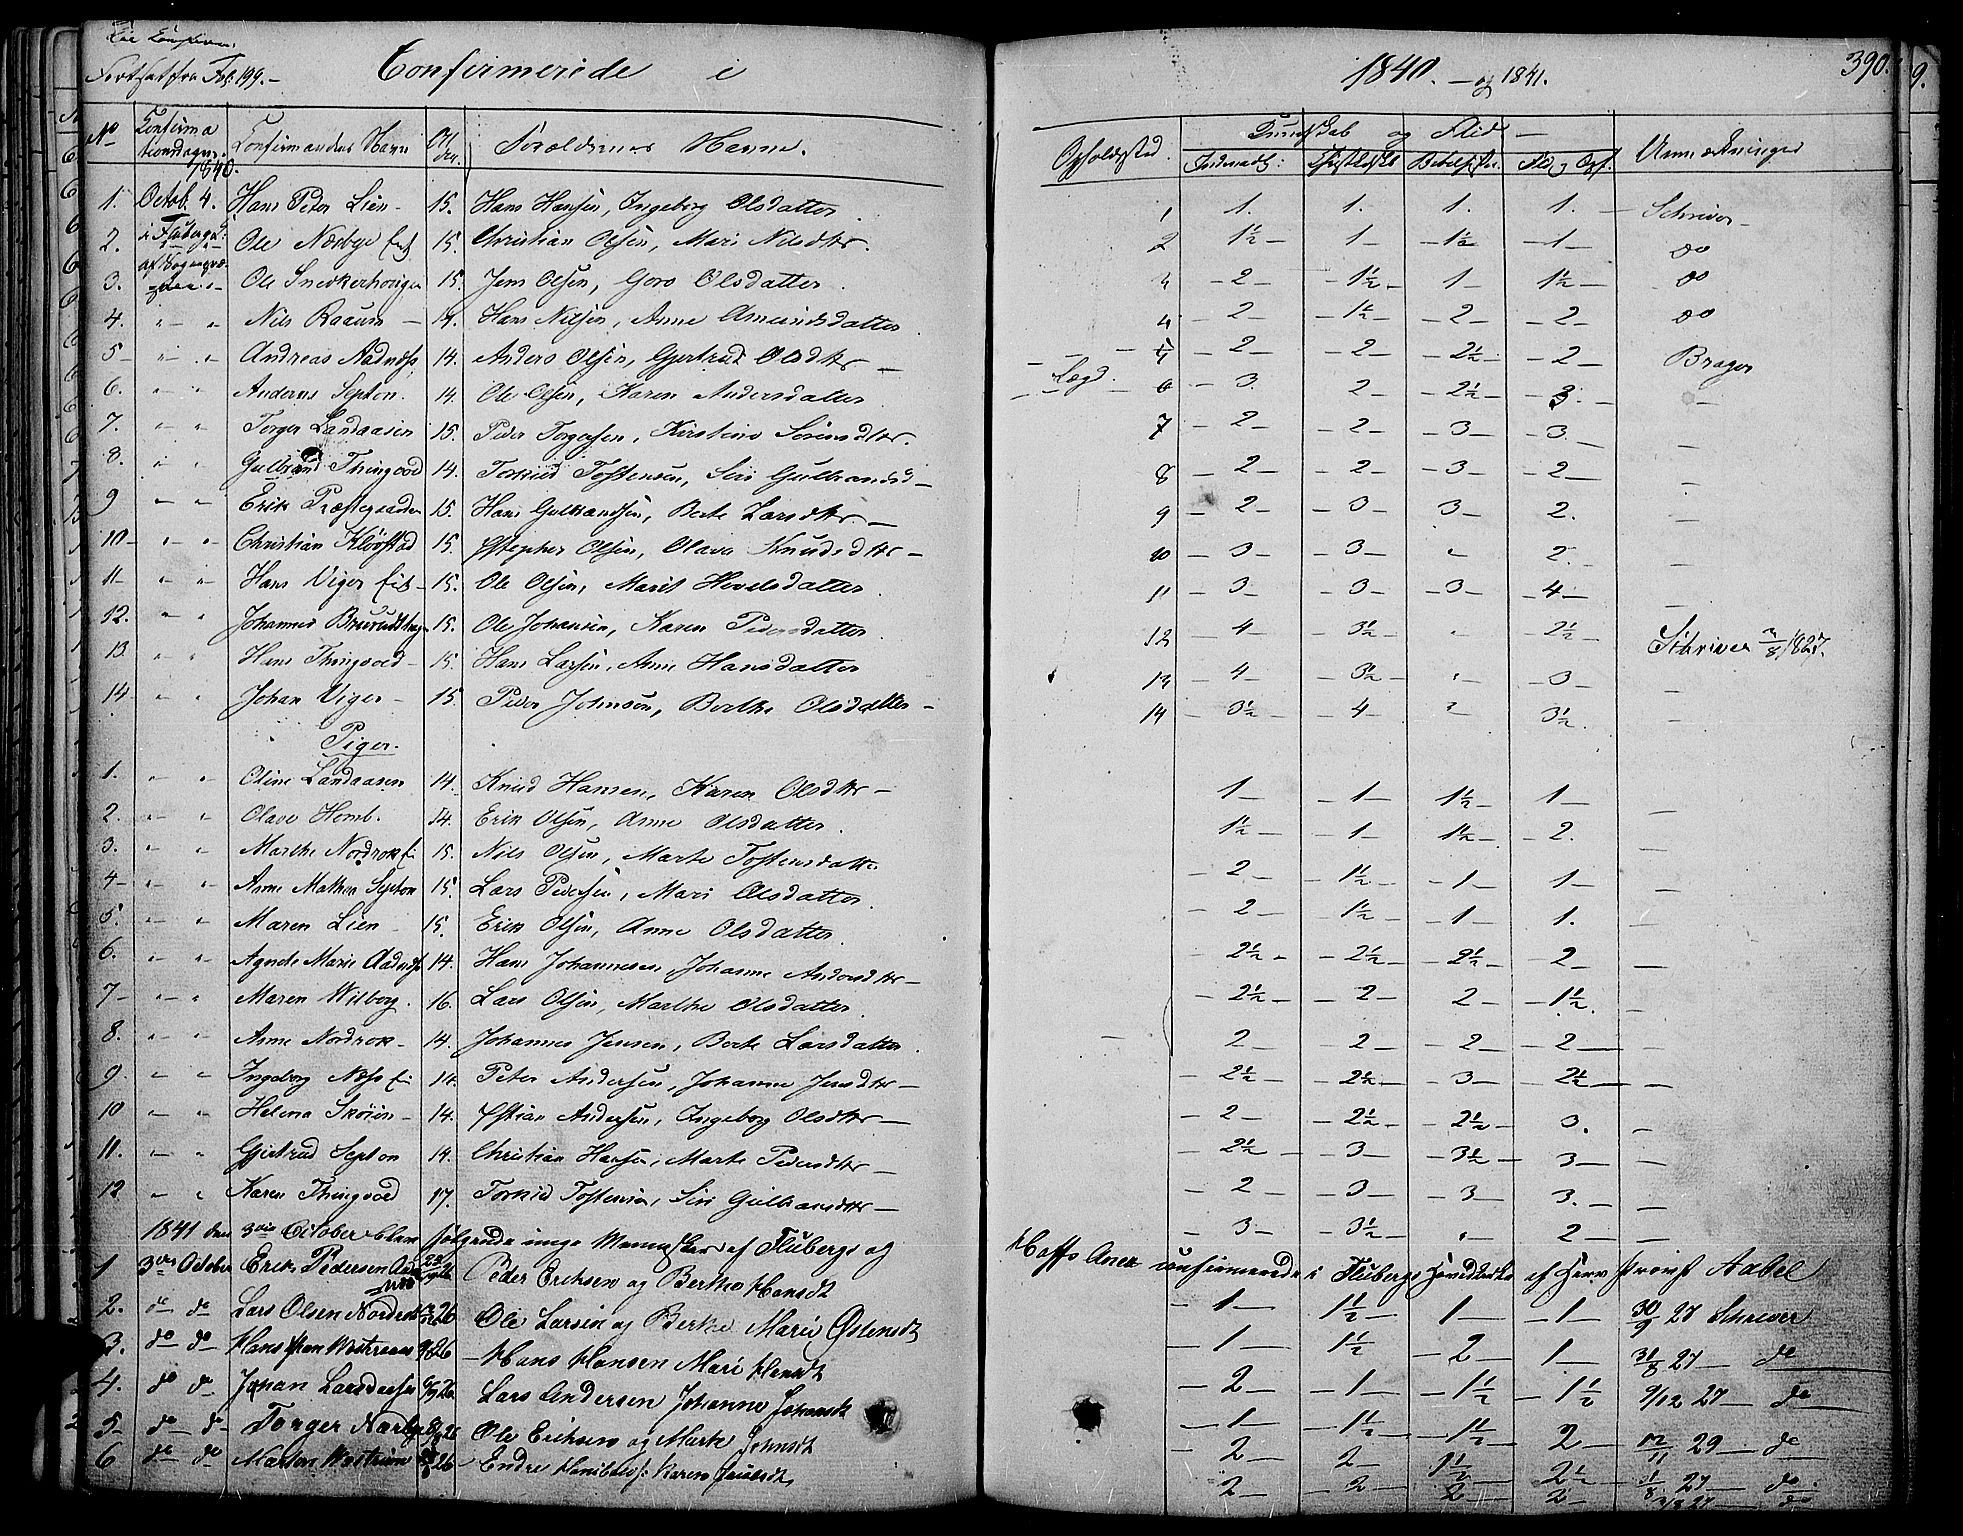 Fortsat fra Fol. 199.
Confirmerede i 1840. og 1841. 390.
No Confirmationsdagen. Confirmandens Navn Forældrenes Navne. Opholdssted. Kundskab og Flid Anmærkninger
1840.
1. Octob. 4. Hans Peter Lien 15. Hans Hansen, Ingeborg Olsdatter 1 1. 1. 1. 1. Schriver
2. i Fluberg Ole Næsbye 15. Christian Olsen, Mari Nilsdtr. 2 1½ 1 1½ 1 do
3. Ole Snekkerhougen 15. Jens Olsen, Goro Olsdatter 3 2 1½ 1 1½ do
4. " " Nils Raaum 14. Hans Nilsen, Anne Amundsdatter 4 2 1½ 2 2 do
5 " " Andreas Aadnæss 14. Anders Olsen, Gjertrud Olsdtr 5 2 2 2½ 2 Brager
6. " " Anders Septon. 14. Ole Olsen, Karen Andersdatter Lægd. 6 3 2 2½ 3.
7. " " Torger Landaasen 15. Peder Torgersen, Kirstine Sørensdtr. 7 2 2 3 3
8. " " Gulbrand Thingvold 14. Torkild Tostensen, Siri Gulbrandsd 8 2 2 3 2
9 " " Erik Præstegaarden 15. Hans Gulbrandsen, Berte Larsdtr 9 2 3 3 2.
10 " " Christian Klöfstad 15. Stephen Olsen, Olava Knudsdtr 10 3 3 " 2.
11 " " Hans Viger 15. Ole Olsen, Marit Hovelsdatter 11 3 3 3 4
12. " " Johannes Bruerudhagen 15. Ole Johansen, Karen Pedersdatter 12 4 3½ " 2½ Schriver 3/8 1827.
13 " " Hans Thingvold 15. Hans Larsen, Anne Hansdatter 13 4 3½ " 3
14 " " Johan Viger 15 Peder Johnson, Berthe Olsdatter 14 3½ 4 " 3½
Piger.
1. " " Oline Landaasen 14. Knud Hansen, Karen Olsdtr 1 1 1½ 1
2. " " Olave Homb. 14. Erik Olsen, Anne Olsdatter 1½ 1 1½ 2.
3. " " Marthe Nordrok 15. Nils Olsen, Marte Tostensdatter 2 1½ 1 1
4 " " Anne Mathea Septon 15 Lars Pedersen, Mari Olsdatter 2 1½ 1 1.
5. " " Maren Lien 15. Erik Olsen, Anne Olsdatter 2½ 2½ 2½ 2
6. " " Agnete Marie Aadnæss 14. Hans Johannesen, Johanne Andersdtr 2½ 2 2 1½
7 " " Maren Wilberg. 16. Lars Olsen, Marthe Olsdatter 2 2 2 2
8. " " Anne Nordrok 14. Johannes Jensen, Berte Larsdatter 2½ 2½ 3 2½
9 " " Ingeborg Næss 14. Peter Andersen, Johanne Jensdtr 2 2½ 2½ 3.
10 " " Helena Sköien 14. Christian Andersen, Ingeborg Olsdtr 2½ 3 3½ 3
11. " " Gjertrud Septon 14. Christian Hansen, Marte Pedersdtr 2 3 3 3.
12 " " Karen Thingvold 17. Torkild Tostensen, Siri Gulbrandsdtr 3 3½ " 2
1841 den 3die October bleve følgende unge Mennesker af Flubergs og Hoffs Anex confirmerede i Flubergs Hovedkirke af Herr Provst Aabel
1 3die October Erik Pedersen Peder Erichsen og Berthe Hansdt 1 1½ 1 1 30/9 27 Schriver
2. do do Lars Olsen Nordrok 26 Ole Larsen og Berthe Marie Østensdt 1 1½ 2 1 31/8 27 do
3. do do Hans 26 Hans Hansen Mari Hansdt 2 1 1½ 1½ 9/12 27 do
4. do do Johan Larsen 26 Lars Andersen Johanne Johansdt 1 1½ 1½ 2 12/11 29 do
5 do do Torger Næsbye 26 Ole Erichsen og Marte Johnsdt 2 2 1½ 2½ 1/8 27 do
6 do do Morten 26 Endre Karen 2 2 2 2 27 do